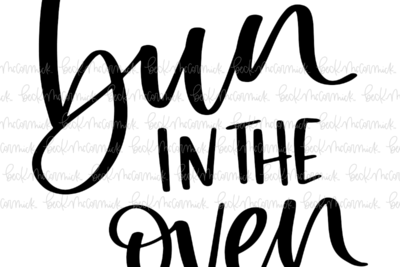 bun
IN THE
oven